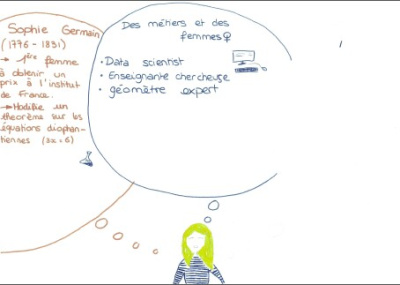 Sophie Germain
(1776 - 1831)
→ 1ère femme
à obtenir un
prix à l'institut
de France.
→ Modifie un
théorème sur les
équations diophan-
tiennes (3x = 6)
Des métiers et des
femmes ♀
• Data scientist
• Enseignante chercheuse
• géomètre expert